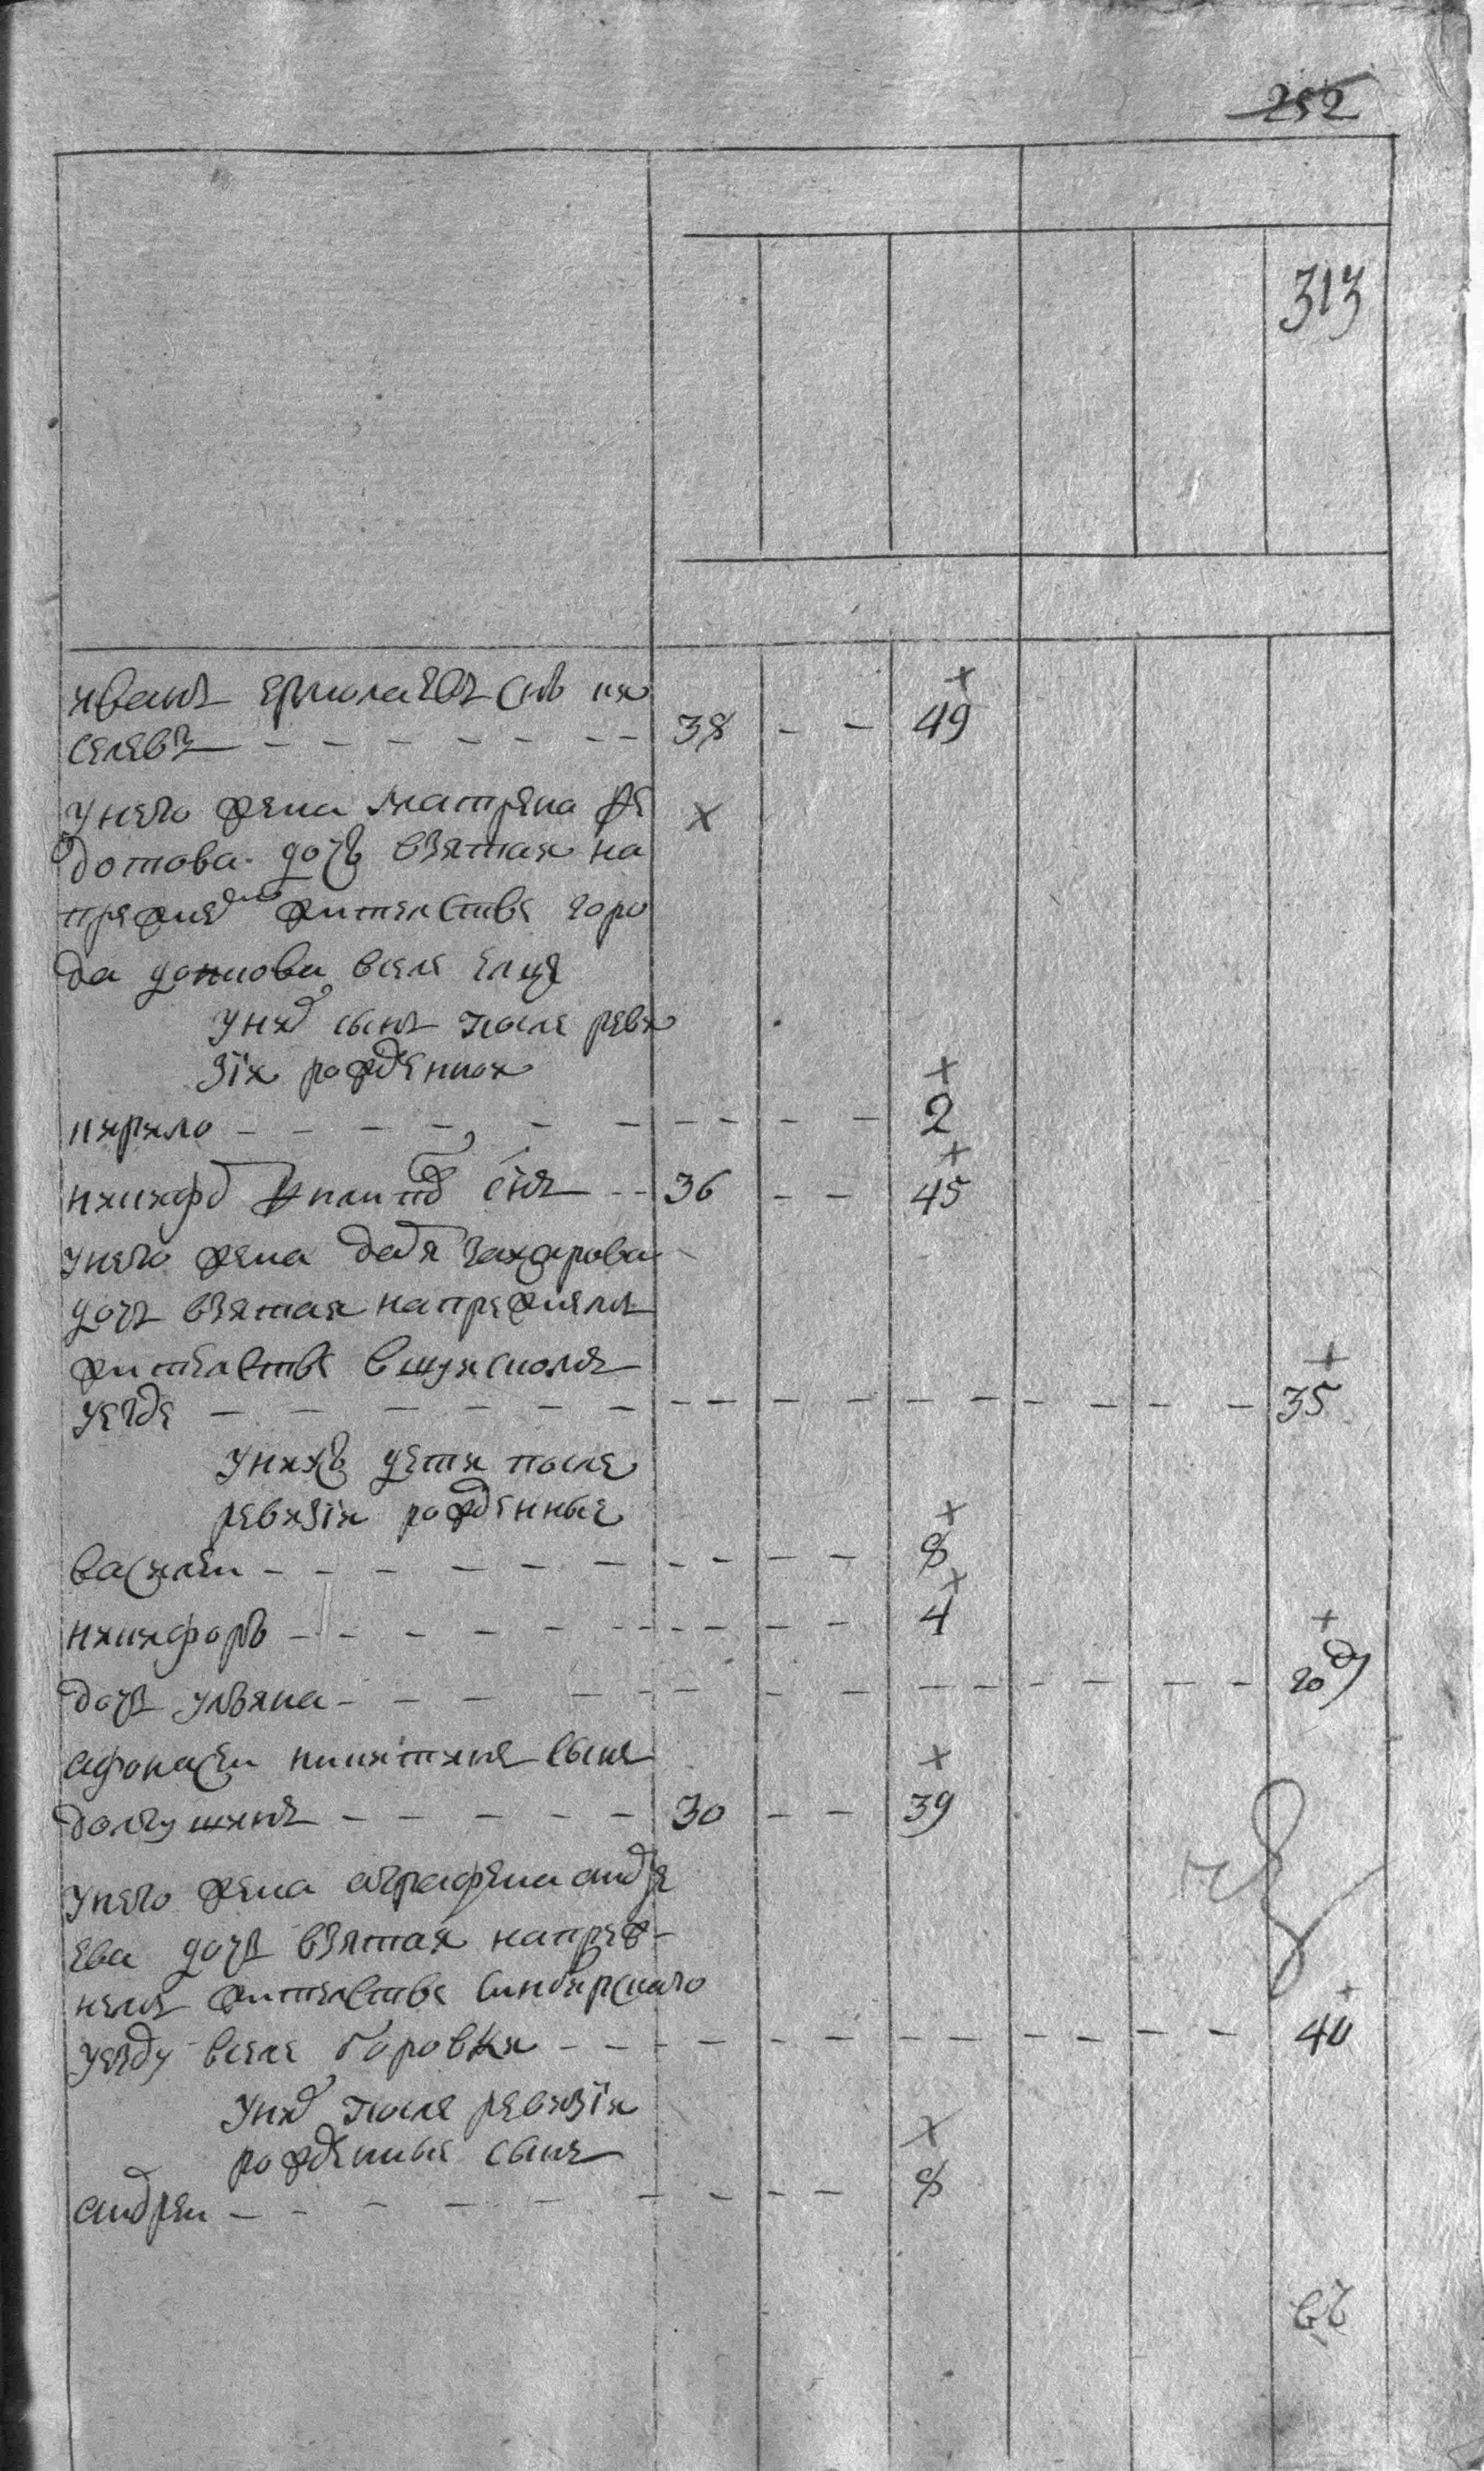 252
313
иванъ ермолаевъ снъ ки
селевъ 38 49
у него жена матрена фе х
дотова дочь взятая на
прежнемъ жителстве горо
да
у них сынъ после реви
зiи рожденнои
кирило 2
никифор снъ 36 45
у него жена дарья захарова
дочь взятая на прежнемъ
жителстве в
уезде 35
у нихъ дети после
ревизiи рожденные
василеи 8
никифоръ 4
дочь ульяна году
афонасеи никитинъ сынъ
долгушинъ 30 39
у него жена аграфена андре
ева дочь взятая на преж
немъ жителстве синбирского
уезду в селе боровки 40
у них после ревизiи
рожденные сынъ
андреи 8